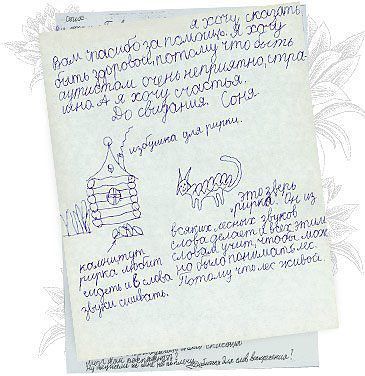 я хочу сказать
Вам спасибо за помощь. Я хочу
быть здоровой, потому что быть
аутистом очень неприятно, стра-
шно. А я хочу счастья.
До свидания. Соня.
избушка для рирки.
это зверь
рирка. Он из
всяких лесных звуков
слова делает и всех этим
словам учит, чтобы мож
но было понимать лес.
Потому что лес живой.
камнитут
рирка любит
сидеть и в слова
звуки слышать.